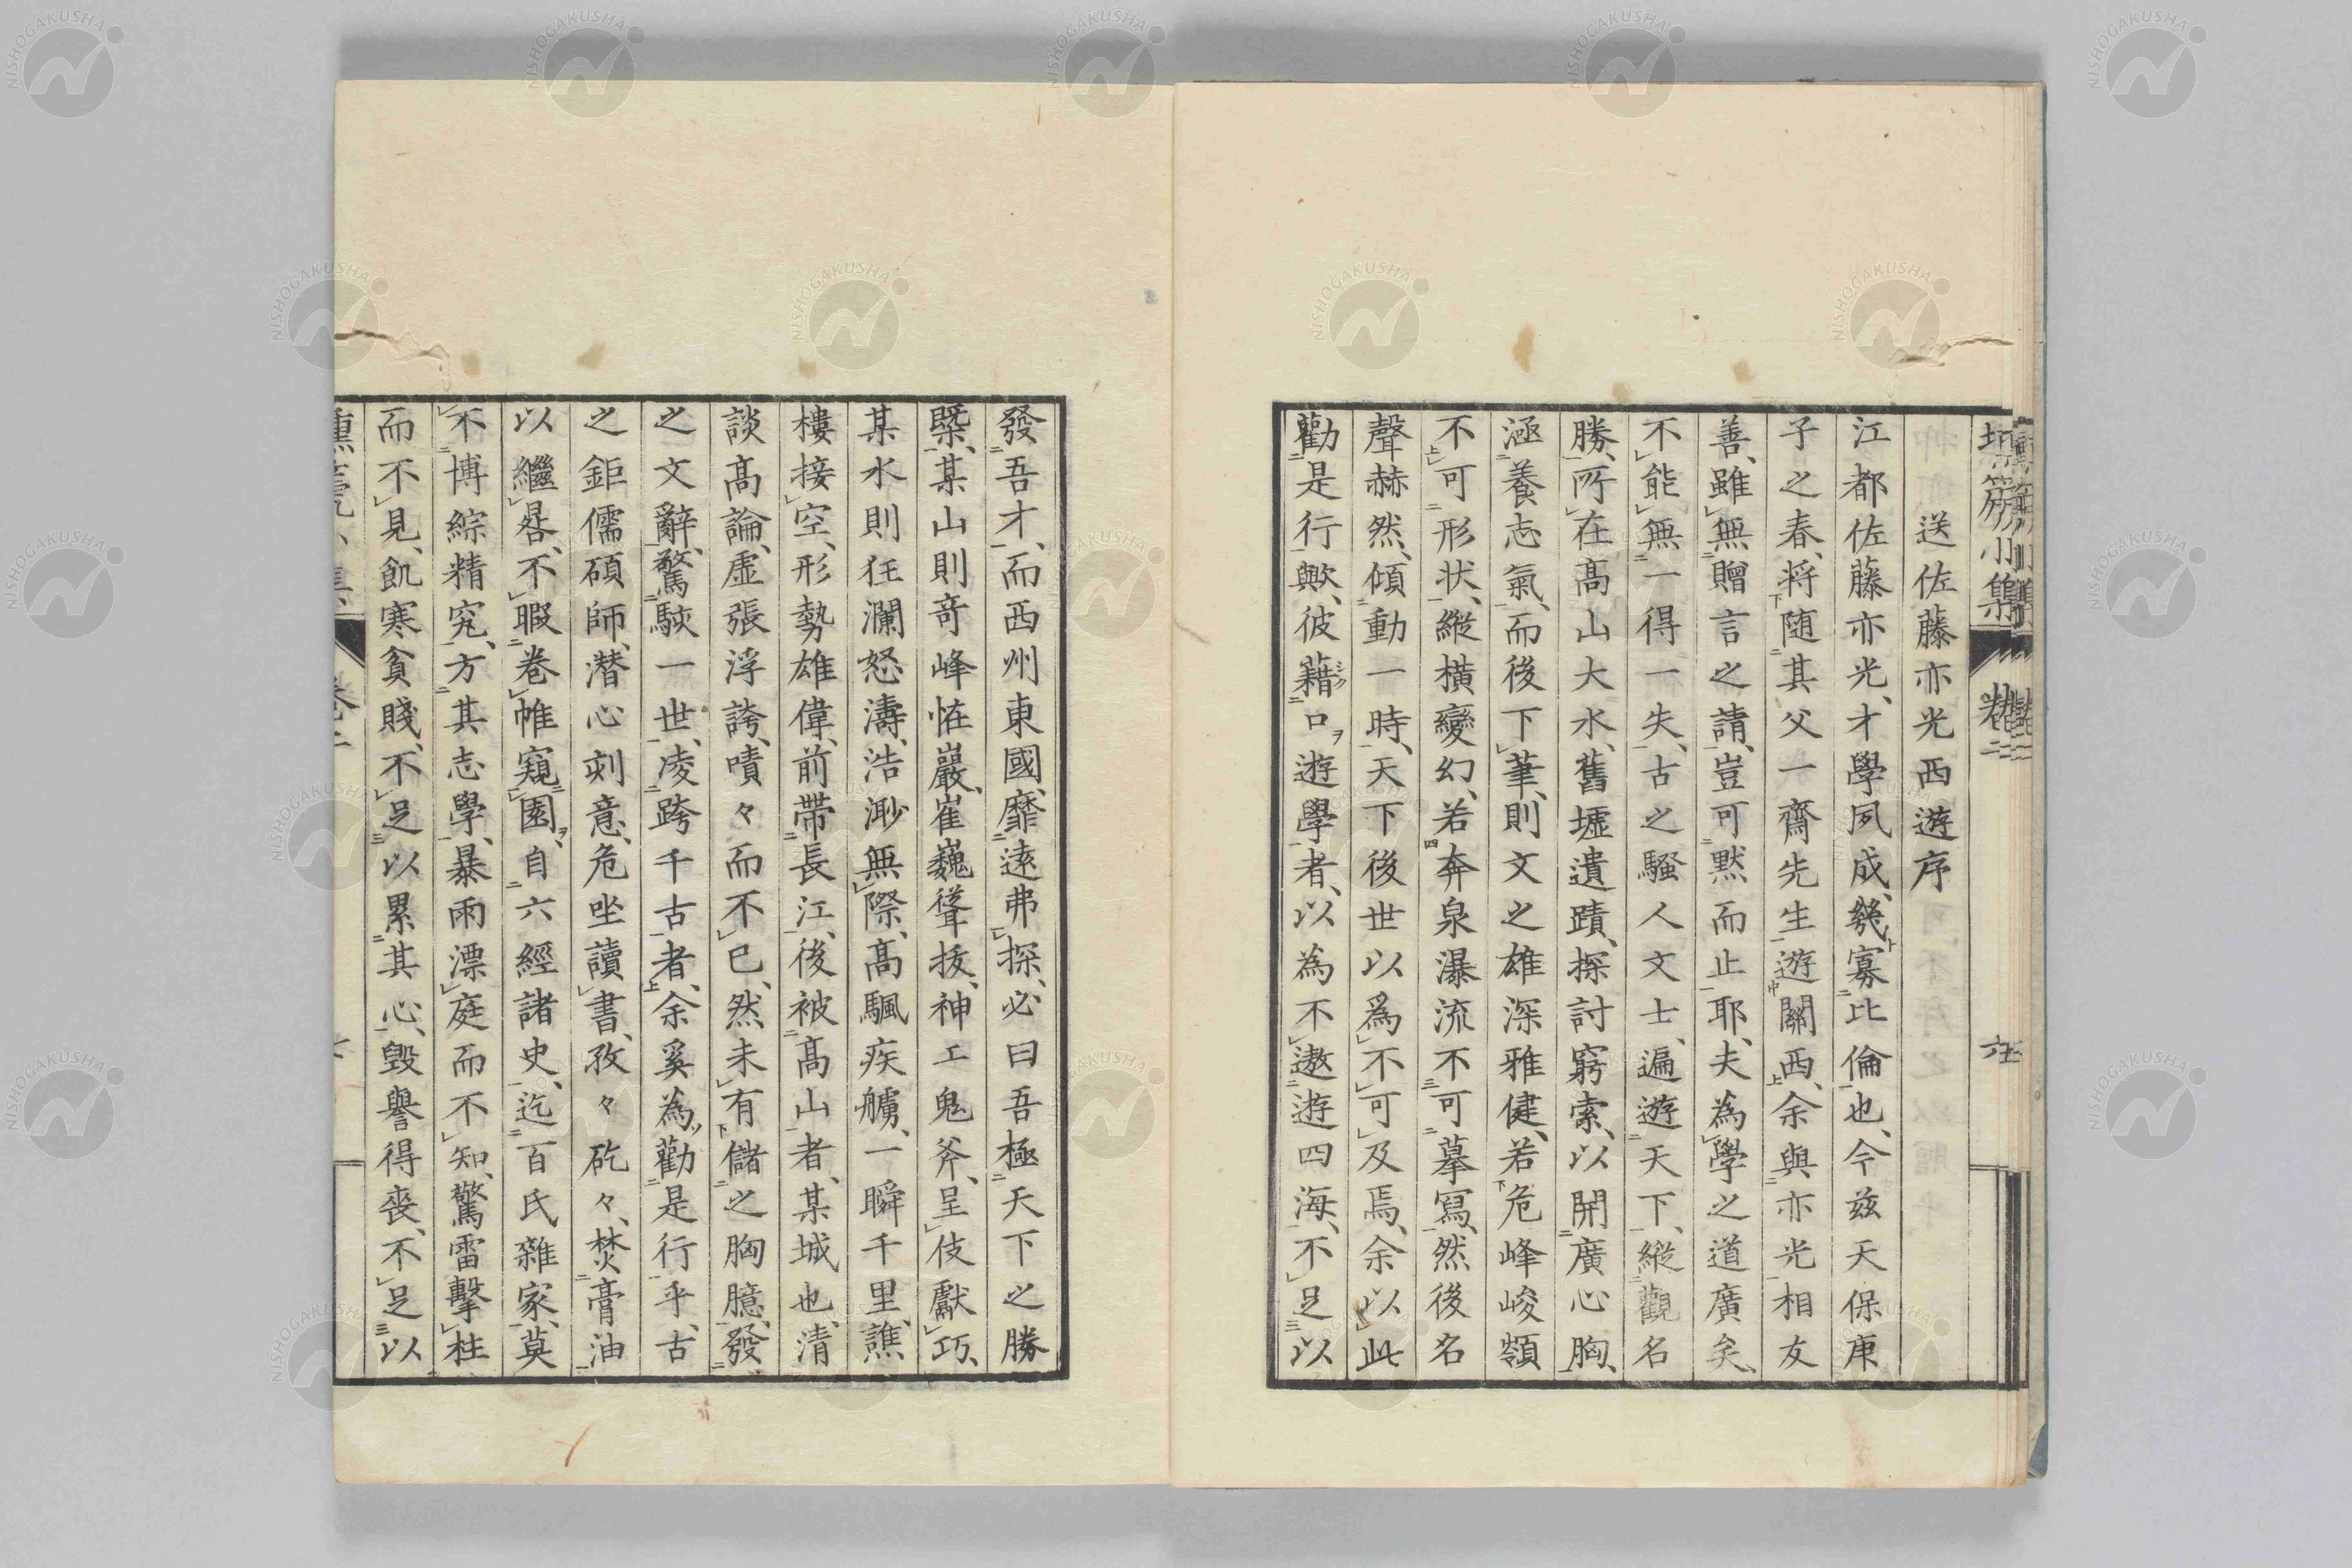 送佐藤亦光西遊序
江都佐藤亦光、才學夙成、幾寡比倫也、今茲天保庚
子之春、將随其父一齋先生遊關西、余與亦光相友
善、雖無贈言之請、豈可默而止耶、夫為學之道廣矣、
不能無一得一失、古之騷人文士、遍遊天下、縱觀名
勝、所在高山大水、舊墟遺蹟、探討窮索、以開廣心胸、
涵養志氣、而後下筆、則文之雄深雅健、若危峰峻嶺
不可形状、縱橫變幻、若奔泉瀑流不可摹寫、然後名
聲赫然、傾動一時、天下後世以爲不可及焉、余以此
勸是行歟、彼藉口遊學者、以為不遨遊四海、不足以
發吾才、而西州東國、靡遠弗探、必曰吾極天下之勝
槩、某山則奇峰恠巖、崔巍聳拔、神工鬼斧、呈伎獻巧、
某水則狂瀾怒濤、浩渺無際、高颿疾艣、一瞬千里、譙
樓接空、形勢雄偉、前帶長江、後被高山者、某城也、清
談高論、虛張浮誇、嘖々而不已、然未有儲之胸臆、發
之文辭、驚駭一世、凌跨千古者、余奚為勸是行乎、古
之鉅儒碩師、潛心刻意、危坐讀書、孜々矻々、焚膏油
以繼晷、不暇巻帷窺園、自六經諸史、迄百氏雜家、莫
不博綜精究、方其志學、暴雨漂庭而不知、驚雷擊柱
而不見、飢寒貧賤、不足以累其心、毀譽得喪、不足以